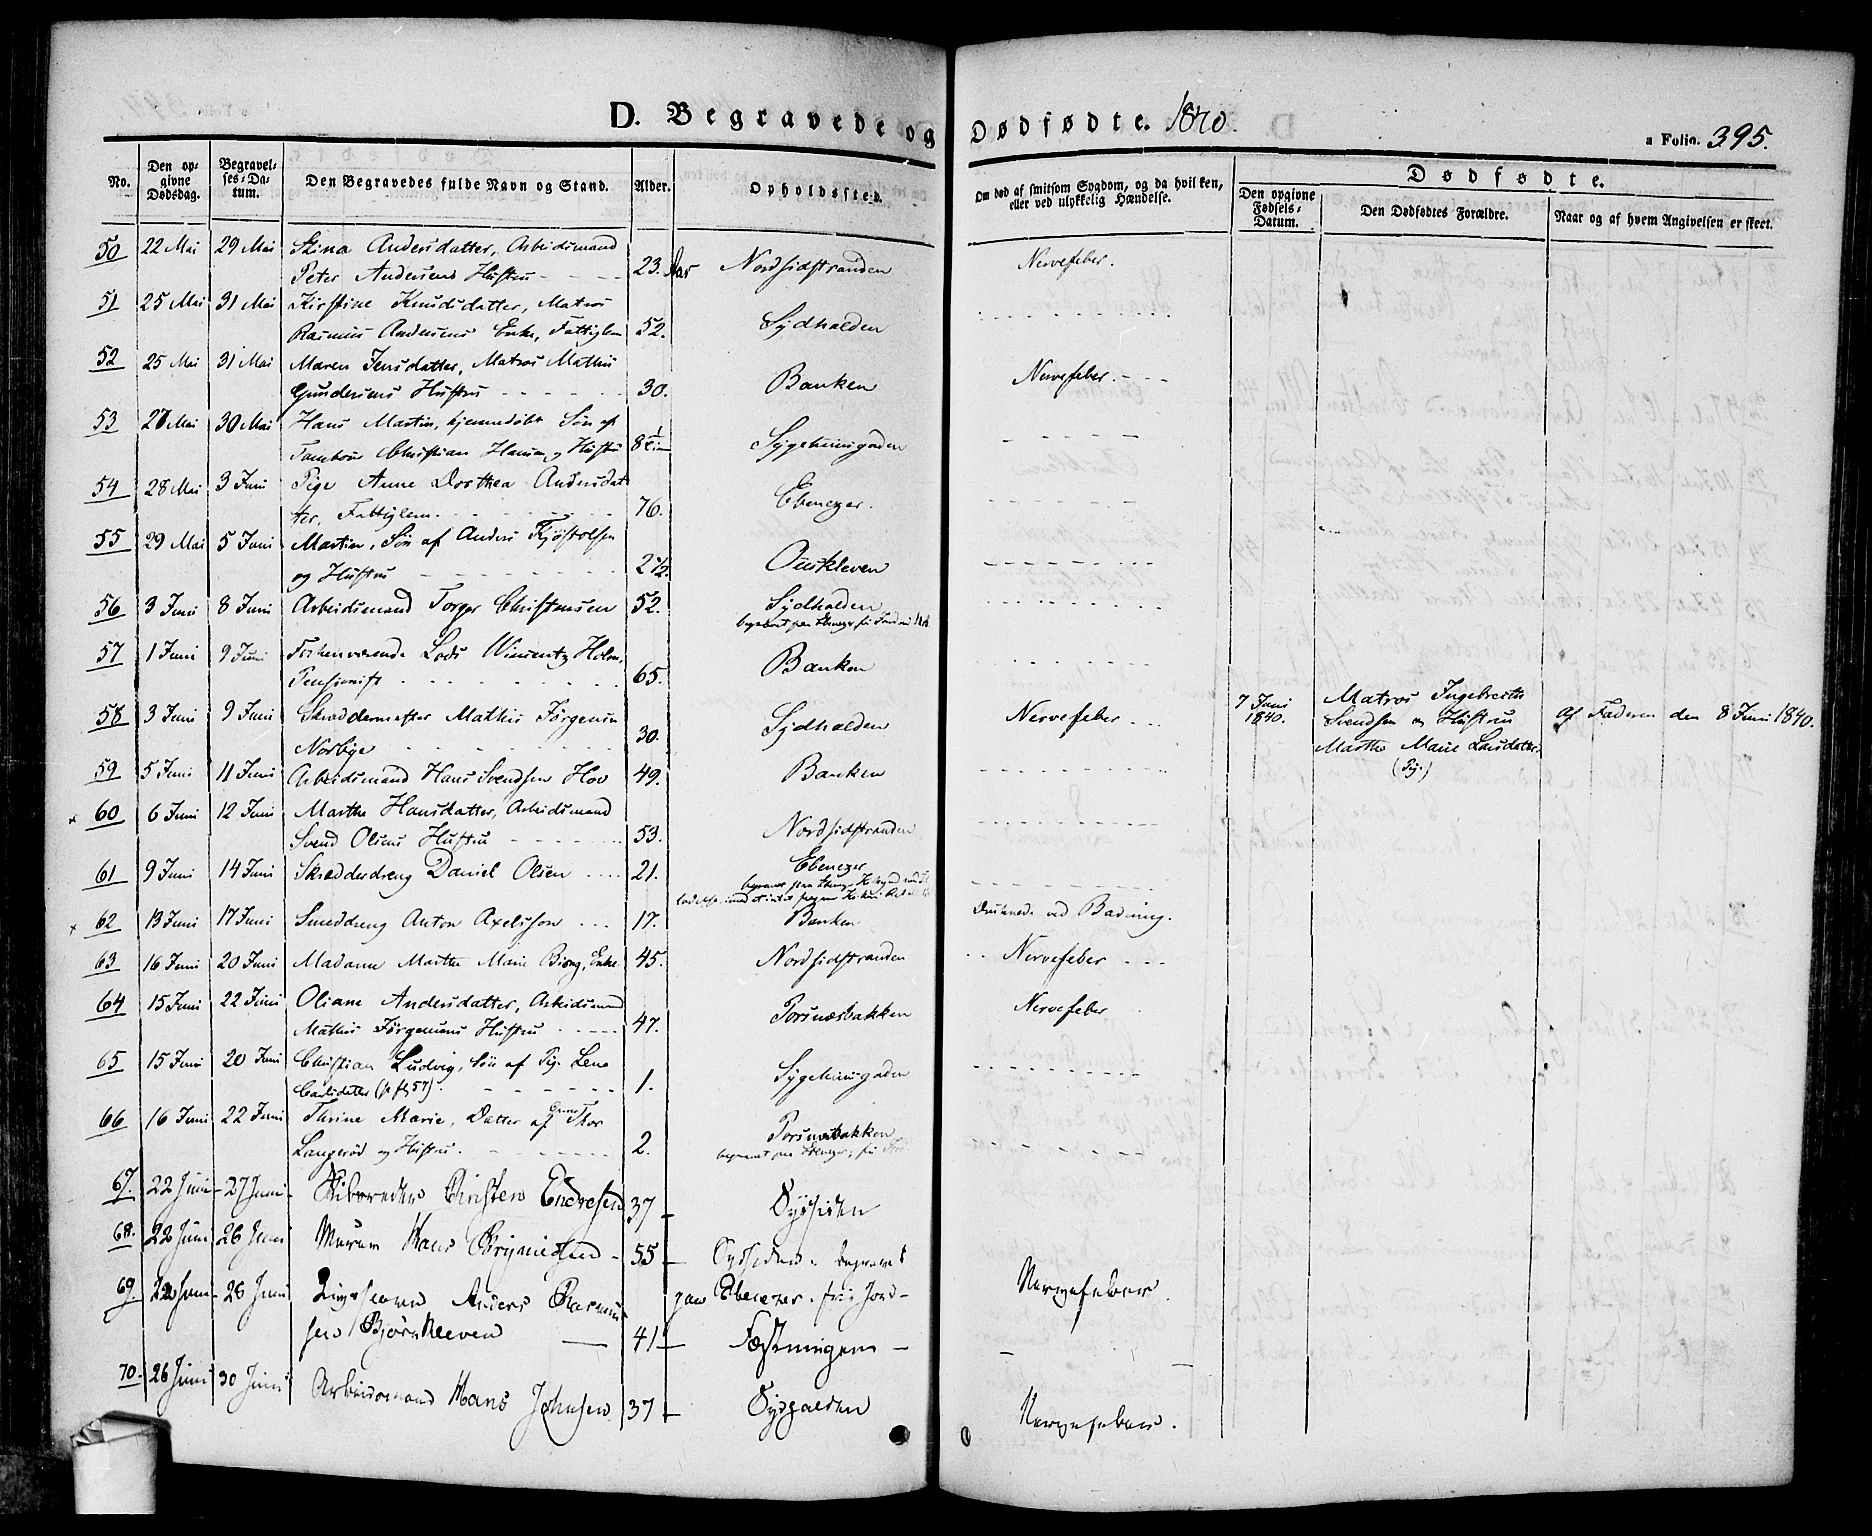 D. Begravede og Dødfødte. 1840.
a Folio. 395.
No.
Den opgivne Dødsdag.
Begravelses-Datum.
Den Begravedes fulde Navn og Stand.
Alder.
Opholdssted.
Om død af smitsom Sygdom, og da hvilken, eller ved ulykkelig Hændelse.
Dødfødte.
Den opgivne Fødsels-Datum.
Den Dødfødtes Forældre.
Naar og af hvem Angivelsen er skeet.
50 22 Mai 29 Mai Stina Andersdatter, Arbeidsmand
Peter Andersens Hustru 23. Aar Nordsidstranden Nervefeber.
51 25 Mai 31 Mai Kirstine Knudsdatter, Matros
Rasmus Andersens Enke, Fattiglem 52. Sydhalden
52 25 Mai 31 Mai Maren Jensdatter, Matros Mathis
Gundersens Hustru 30. Banken Nervefeber.
53 27 Mai 30 Mai Hans Martin, hjemmedøbt Søn af
Tambour Christian Hansen og Hustru Sygehuusgaden
54 28 Mai 3 Juni Pige Anne Dorthea Andersdat
ter, Fattiglem. 76. Ebenezer.
55 29 Mai 5 Juni Martin, Søn af Anders Kjøstolsen
og Hustru 2 1/2. Ouskleven
56 3 Juni 8 Juni Arbeidsmand Torger Christensen 52. Sydhalden
begravet paa Ebenezer fri Jord
57 1 Juni 9 Juni Forhenværende Lods Winsentz Holm,
Pensionist 65. Banken
58 3 Juni 9 Juni Skræddermester Mathis Jørgensen
Norbye 30. Sydhalden Nervefeber
7 Juni 1840. Matros Ingebreth
Svendsen og Hustru
Marthe Marie Larsdatter.
(Pig.)
Af Faderen den 8 Juni 1840.
59 5 Juni 11 Juni Arbeidsmand Hans Svendsen Hov 49. Banken
x 60 6 Juni 12 Juni Marthe Hansdatter, Arbeidsmand
Svend Olsens Hustru 53. Nordsidstranden
61 9 Juni 14 Juni Skrædderdreng Daniel Olsen 21. Ebenezer
x 62 13 Juni 17 Juni Smeddreng Anton Axelsson 17. Banken Druknede ved Badning.
63 16 Juni 20 Juni Madame Marthe Marie Biong, Enke 45. Nordsidstranden Nervefeber
64 15 Juni 22 Juni Oliane Andersdatter, Arbeidsmand
Mathis Jørgensens Hustru 47. Torsnæsbakken Nervefeber
65 15 Juni 20 Juni Christian Ludvig, Søn af Pig. Lene
Carlsdatter 1. Sygehuusgaden
66 16 Juni 22 Juni Thrine Marie, Datter af Thor
Langerød og Hustru. 2. Torsnæsbakken
67. 22 Juni 27 Juni Skibsreder Christen Endresen 37 Sydsiden
68. 22 Juni 26 Juni Murer Hans Brynildsen 55 Sydsiden begravet
paa Ebenezer. frii Jord
69. 22 Juni 26 Juni Anders Rasmus
sen Bjørnkleven 41 Fæstningen Nervefeber.
70. 26 Juni 30 Juni Arbeidsmand Hans Johnsen 37 Sydhalden Nervefeber.